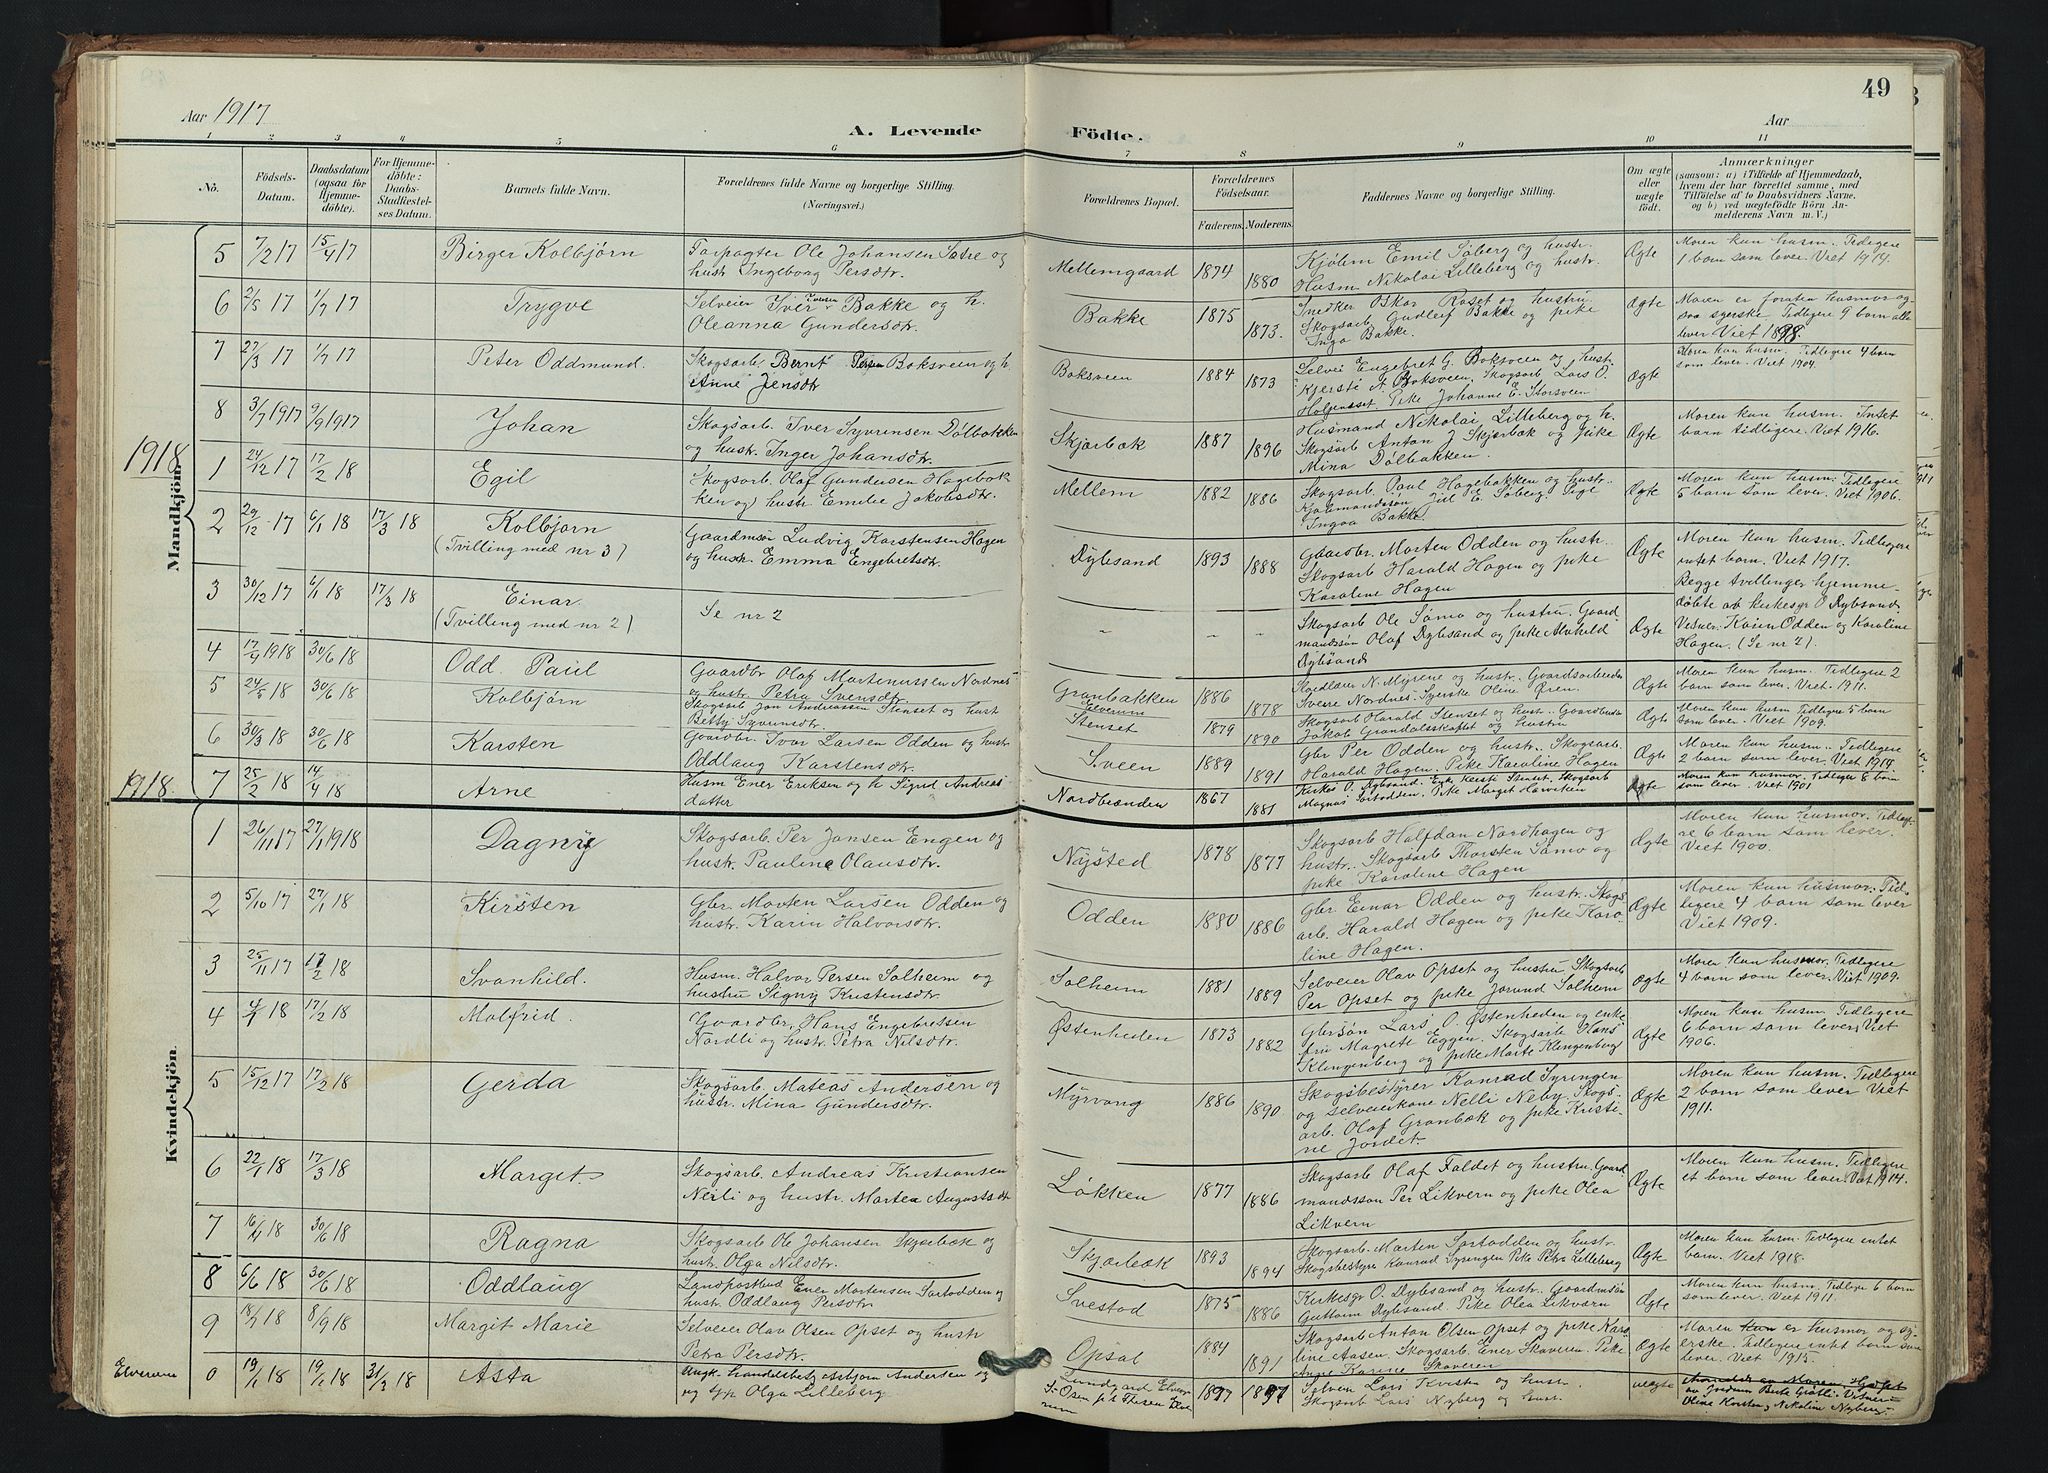 49
Aar 1917
A. Levende Födte.
Aar
1 2 3 4 5 6 7 8 9 10 11
Nö.
Födsels-Datum.
Daabsdatum (ogsaa for Hjemmedöbte).
For Hjemmedöbte: Daabs-Stadfæstelses Datum.
Barnets fulde Navn.
Forældrenes fulde Navne og borgerlige Stilling. (Næringsvei.)
Forældrenes Bopæl.
Forældrenes Födselsaar.
Faderens. Moderens.
Faddernes Navne og borgerlige Stilling.
Om ægte eller uægte födt.
Anmærkninger
(saasom: a) i Tilfælde af Hjemmedaab, hvem der har forrettet samme, med Tilföielse af to Daabsvidners Navne, og b) ved uægtefödte Börn Anmelderens Navn m. V.)
Mandkjön.
5 7/2 17 15/4 17 Birger Kolbjörn
Forpagter Ole Johansen Sætre og hustr Ingeborg Persdtr.
Mellemgaard 1874 1880
Kjölem Emil Søberg og hustr. Husm. Nikolai Lilleberg og hustr.
Ægte
Moren kun husm. Tidligere 1 barn som lever. Viet 1914.
6 2/5 17 1/7 17 Trygve
Selveier Iver Iversen Bakke og h. Oleanna Gundersdtr.
Bakke 1875 1873.
Snedker Oskar Roset og hustru Skogsarb. Gudleif Bakke og pike Inga Bakke.
Ægte
Moren er foruten husmor ogsaa syerske. Tidligere 9 barn alle lever Viet 1898.
7 27/3 17 1/7 17 Peter Oddmund.
Skogsarb. Bernt Persen Boksveen og h. Anne Jensdtr
Boksveen 1884 1873
Selvei Engebret G. Boksveen og hustr. Kjersti A Boksveen. Skogsarb Lars O. Pike Johanne E. Storsveen
Ægte
Moren kun husm. Tidligere 4 barn som lever. Viet 1904.
8 3/7 1917 9/9 1917 Johan
Skogsarb. Iver Syversen Dölbakken og hustr. Inger Johansdtr.
Skjærbæk 1887 1896
Husmand Nikolai Lilleberg og h. Skogsarb Anton J Skjærbæk og pike Mina Dölbakken.
Ægte
Moren kun husm. Intet barn tidligere. Viet 1916.
1918
1 24/12 17 17/2 18 Egil
Skogsarb. Olaf Gundersen Hagebakken og hustr Emilie Jakobsdtr.
Mellem 1882 1886
Skogsarb. Paul Hagebakken og hustr. E. Søberg. Pige Inga Bakke.
Ægte
Moren kun husm. Tidligere 5 barn som lever. Viet 1906.
2 29/12 17 6/1 18 17/3 18 Kolbjörn (Tvilling med nr 3)
Gaardmsön Ludvig Karstensen Hagen og hustr. Emma Engebretsdtr.
Dybsand 1893 1888
Gaardbr. Morten Odden og hustr. Skogsarb Harald Hagen og pike Karoline Hagen
Ægte
Moren kun husm. Tidligere intet barn. Viet 1917. Begge tvillinger hjemme-
3 30/12 17 6/1 18 17/3 18 Einar. (Tvilling med nr 2).
Se nr 2
" " "
Skogsarb Ole Sömo og hustru. Gaardmandssön Olaf Dybsand og pike Alvhild Dybsand
Ægte
döbte av kirkesgr O Dybsand. Vidner: Karen Odden og Karoline Hagen. (Se nr 2).
4 17/4 1918 30/6 18 Odd Paul
Gaardbr Olaf Martinussen Nordnes og hustr. Petra Svensdtr.
Granbakken Elverum 1886 1878
N. Myrene og hustr. Gaardsarbeider Sverre Nordnes. Syerske Oline Ören.
Ægte
Moren kun husm. Tidligere 2 barn som lever. Viet 1911.
5 24/5 18 30/6 18 Kolbjörn
Skogsarb Jon Andreassen Stenset og hust Betty Syversdtr.
Stenset 1879 1890
Skogsarb Harald Stenset og hust. Jakob Grandalsskaftet og hustru
Ægte
Moren kun husm Tidligere 5 barn som lever. Viet 1909.
6 30/3 18 30/6 18 Karsten
Gaardbr. Ivar Larsen Odden og hustr Oddlaug Karstensdtr.
Sveen 1889 1891
Gbr Per Odden og hustr. Skogsarb. Harald Hagen. Pike Karoline Hagen
Ægte
Moren kun husm. Tidligere 2 barn som lever. Viet 1914.
1918.
7 25/2 18 14/4 18 Arne
Husm Ener Eriksen og h Sigrid Andreasdatter
Nordbrænden 1867 1881
Kirkes O. Dybsand. Enke Kersti Stenset. Skogsarb Magnus Sortodden. Pike Marget
Ægte
Moren kun husmor. Tidligere 8 barn som lever. Viet 1901
Kvindekjön.
1 26/11 17 27/1 1918 Dagny
Skogsarb. Per Jonsen Engen og hustr. Pauline Olausdtr.
Nysted 1878 1877
Skogsarb Halfdan Nordhagen og hustr. Skogsarb Thorsten Sömo og pike Karoline Hagen
Ægte
Moren kun husmor. Tidligere 6 barn som lever. Viet 1900.
2 5/10 17 27/1 18 Kirsten
Gbr. Morten Larsen Odden og hustr. Karin Halvorsdtr.
Odden 1880 1886
Gbr. Einar Odden og hustr. Skogsarb. Harald Hagen og pike Karoline Hagen.
Ægte
Moren kun husmor. Tidligere 4 barn som lever Viet 1909.
3 25/11 17 17/2 18 Svanhild.
Husm. Halvor Persen Solheim og hustru Signy Kristensdtr.
Solheim 1881 1889
Selveier Olav Opset og hustru. Skogsarb Per Opset og pike Jorund Solheim
Ægte
Moren kun husmor. Tidligere 4 barn som lever. Viet 1909.
4 4/1 18 17/2 18 Molfrid.
Gaardbr. Hans Engebretsen Nordli og hustr. Petra Nilsdtr.
Østenheden 1873 1882
Gbrsön Lars O. Østenheden og enkefru Magrete Eggen. Skogsarb. Hans Klingenberg og pike Marte Klingenberg
Ægte
Moren kun husm. Tidligere 6 barn som lever. Viet 1906.
5 15/12 17 17/2 18 Gerda
Skogsarb. Mateas Andersen og hustr. Mina Gundersdtr.
Myrvang 1886 1890
Skogsbestyrer Konrad Syringen og selveierkone Nelli Neby. Skogsarb. Olaf Granbæk og pike Kristine Jordet.
Ægte
Moren kun husm. Tidligere 2 barn som lever Viet 1911.
6 22/1 18 17/3 18 Marget.
Skogsarb. Andreas Kristiansen Nerli og hustr. Martea Augustsdtr
Løkken 1877 1886
Skogsarb Olaf Faldet og hustru. Gaardmandssön Per Likvern og pike Olea Likvern
Ægte
Moren kun husm. Tidligere et barn som lever. Viet 1914.
7 16/4 18 30/6 18 Ragna
Skogsarb Ole Johansen Skjærbæk og hustr. Olga Nilsdtr.
Skjærbæk 1893 1894
Skogsarb. Marten Sortodden og hustr. Skogsbestyrer Konrad Syringen Pike Petra Lilleberg
Ægte
Moren kun husm. Tidligere intet barn. Viet 1918.
8 6/6 18 30/6 18 Oddlaug
Landpostbud Ener Mortensen Sortodden og hustr. Oddlaug Persdtr.
Svestad 1875 1886
Kirkesgr O. Dybsand og hustr. Gaardmsön Guttorm Dybsand. Pike Olea Likværn
Ægte
Moren kun husm. Tidligere 6 barn som lever. Viet 1911.
9 18/7 18 8/9 18 Margit Marie
Selveier Olav Olsen Opset og hustr Petra Persdtr.
Opsal 1884 1891
Skogsarb Anton Olsen Opset og pike Karoline Aasen. Skogsarb. Ener Skaveren. Pike Karine Skaveren
Ægte
Moren kun er husmor og syerske. Tidligere intet barn som lever. Viet 1915.
Elverum
0 19/1 18 19/1 18 31/3 18 Asta
Ungk. handelsbetj Asbjørn Andersen og ug. pp Olga Lilleberg
1897 1897
Lars Kvisten og hust. Skogsarb Lars Nyberg og hust.
uægte
Anmeldt av Moren.
av Jordmor Berte Grötli. Vidner: Oline Kvisten, Nikoline Nyberg.